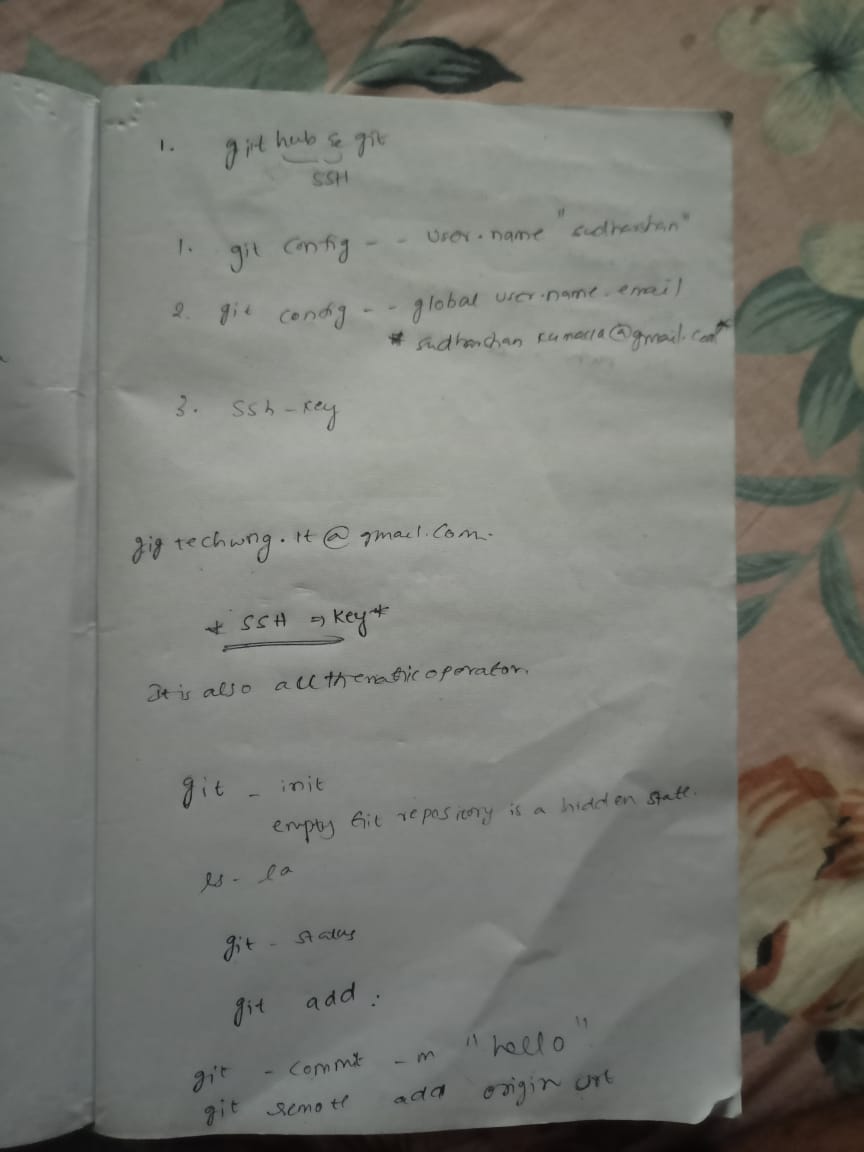 1. git hub & git
SSH
1. git config - - user.name "sudharshan"
2. git config - - global user.name.email
* sudharshan kumarra@gmail.com*
3. ssh - key
gig techwng.it@gmail.com.
* SSH => key *
It is also authentic operator.
git - init
empty Git repository is a hidden state.
ls - la
git - status
git add :
git - commit - m "hello"
git remote add origin url